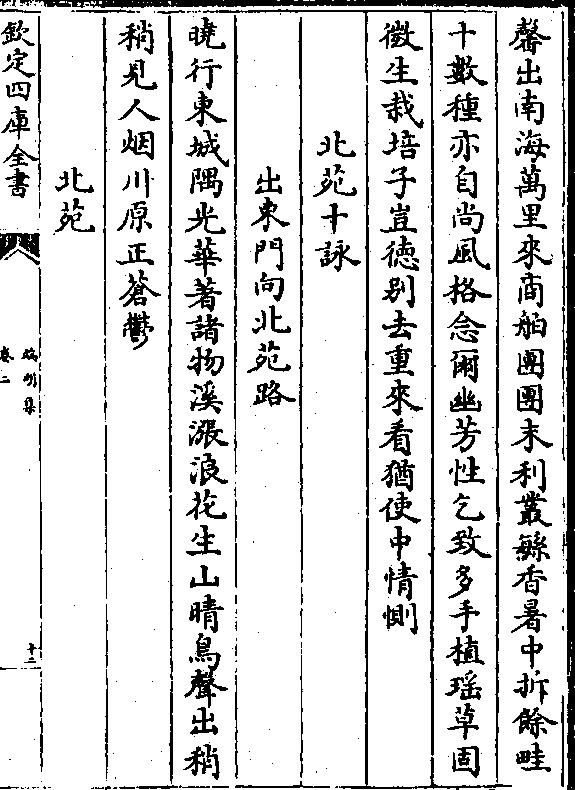 馨出南海萬里來商舶團團末利叢繁香暑中折餘畦
十數種亦自尚風格念爾幽芳性乞致多手植瑶草固
微生栽培子豈德别去重來看猶使中情惻
北苑十詠
出東門向北苑路
曉行東城隅光華著諸物溪漲浪花生山晴鳥聲出稍
稍見人烟川原正蒼鬱
北苑
欽定四庫全書
卷二
十二